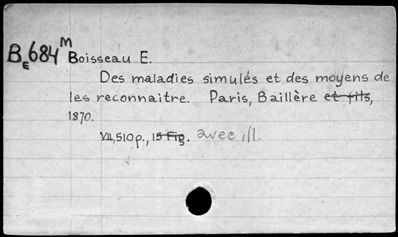 BE684M Boisseau E.
Des maladies simulés et des moyens de
les reconnaitre. Paris, Baillère et fils,
1870.
VII, 510 p., 15 Fig. avec ill.